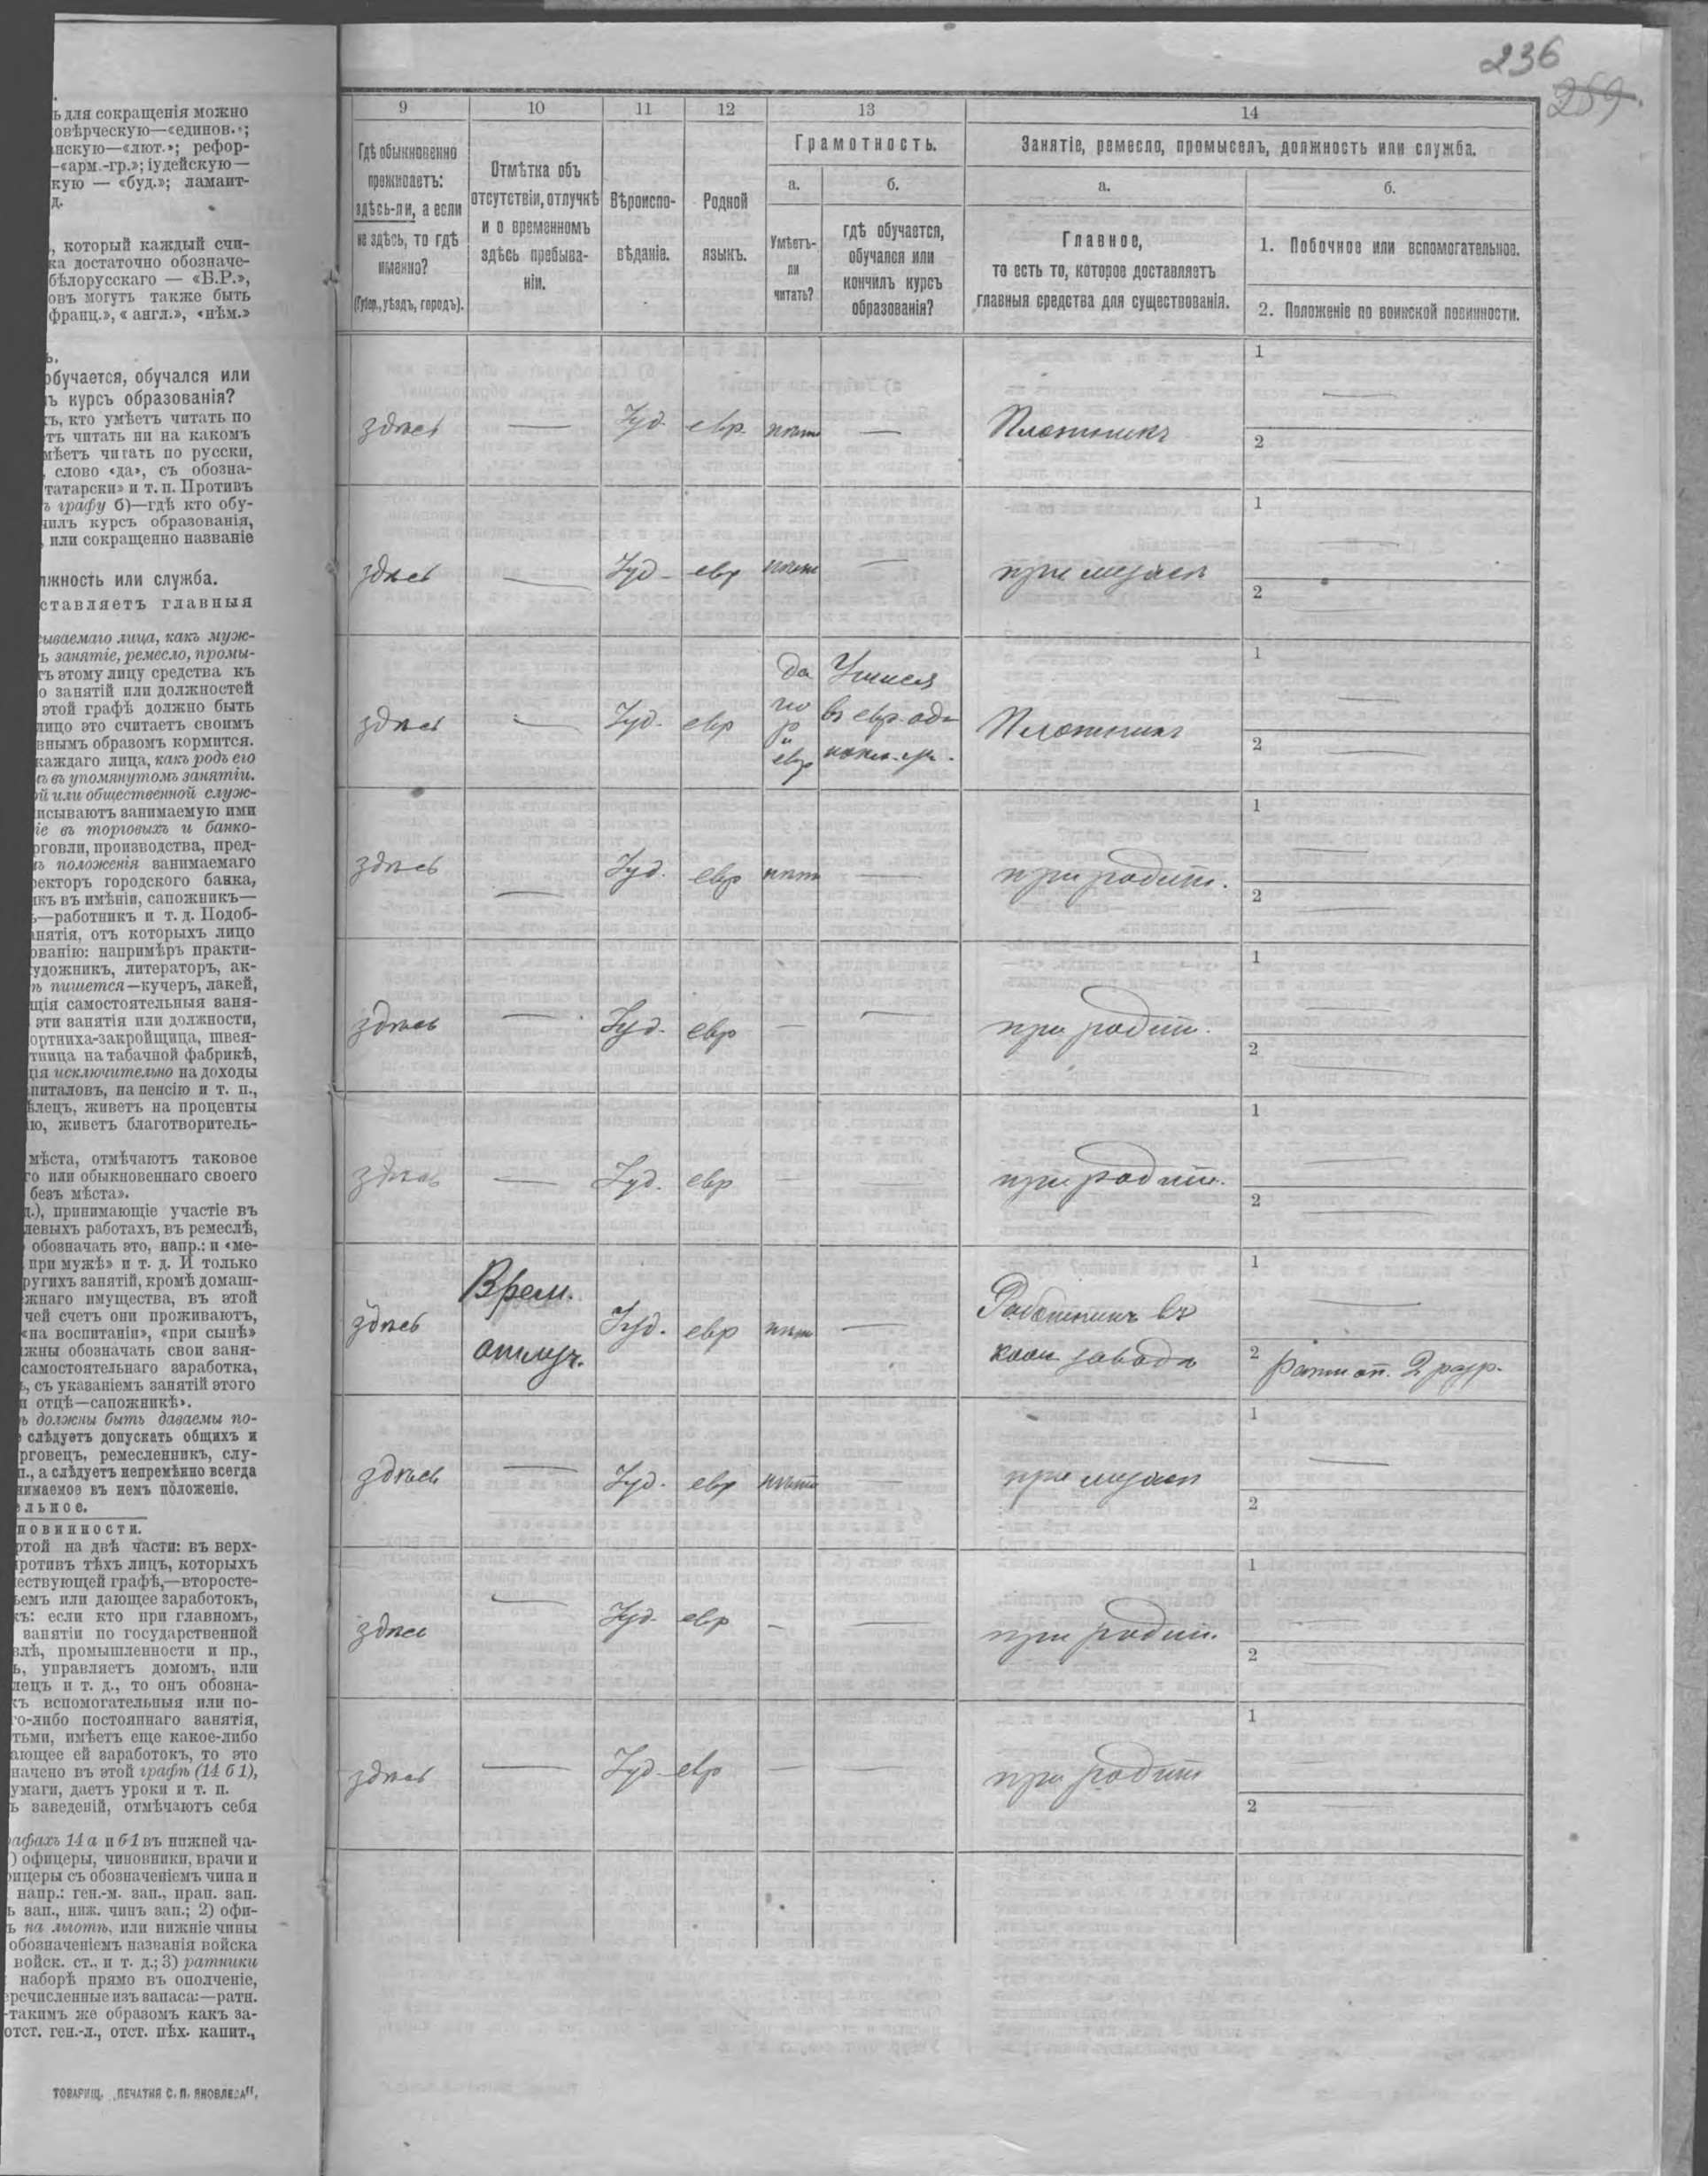 ь для сокращенія можно
овѣрческую—«единов.»;
нскую—«лют.»; рефор-
—«арм.-гр.»; іудейскую —
кую — «буд.»; ламаит-
д.
, который каждый счи-
ка достаточно обозначе-
бѣлорусскаго — «Б.Р.»,
овъ могутъ также быть
франц.», « англ.», «нѣм.»
ь.
обучается, обучался или
ъ курсъ образованія?
ъ, кто умѣетъ читать по
тъ читать ни на какомъ
мѣетъ читать по русски,
, слово «да», съ обозна-
татарски» и т. п. Противъ
ъ графу б)—гдѣ кто обу-
чилъ курсъ образованія,
, или сокращенно названіе
лжность или служба.
ставляетъ главныя
ываемаго лица, какъ муж-
ь занятіе, ремесло, промы-
тъ этому лицу средства къ
о занятій или должностей
этой графѣ должно быть
лицо это считаетъ своимъ
внымъ образомъ кормится.
каждаго лица, какъ родъ его
ъ въ упомянутомъ занятіи.
й или общественной служ-
исываютъ занимаемую ими
іе въ торговыхъ и банко-
рговли, производства, пред-
ъ положенія занимаемаго
ректоръ городского банка,
икъ въ имѣніи, сапожникъ—
ь—работникъ и т. д. Подоб-
анятія, отъ которыхъ лицо
ованію: напримѣръ практи-
художникъ, литераторъ, ак-
ъ пишется—кучеръ, лакей,
щія самостоятельныя заня-
эти занятія или должности,
ортниха-закройщица, швея-
тница на табачной фабрикѣ,
ія исключительно на доходы
питаловъ, на пенсію и т. п.,
ѣлецъ, живетъ на проценты
ію, живетъ благотворитель-
мѣста, отмѣчаютъ таковое
го или обыкновеннаго своего
безъ мѣста».
д.), принимающіе участіе въ
левыхъ работахъ, въ ремеслѣ,
обозначать это, напр.: и «ме-
при мужѣ» и т. д. И только
ругихъ занятій, кромѣ домаш-
жнаго имущества, въ этой
чей счетъ они проживаютъ,
«на воспитаніи», «при сынѣ»
жны обозначать свои заня-
самостоятельнаго заработка,
ь, съ указаніемъ занятій этого
и отцѣ—сапожникѣ».
ь должны быть даваемы по-
е слѣдуетъ допускать общихъ и
рговецъ, ремесленникъ, слу-
п., а слѣдуетъ непремѣнно всегда
нимаемое въ немъ положеніе.
ельное.
повинности.
ртой на двѣ части: въ верх-
ротивъ тѣхъ лицъ, которыхъ
ествующей графѣ,—второсте-
ьемъ или дающее заработокъ,
къ: если кто при главномъ,
занятіи по государственной
влѣ, промышленности и пр.,
ь, управляетъ домомъ, или
лецъ и т. д., то онъ обозна-
къ вспомогательныя или по-
го-либо постояннаго занятія,
тьми, имѣетъ еще какое-либо
ающее ей заработокъ, то это
начено въ этой графѣ (14 б1),
умаги, даетъ уроки и т. п.
ъ заведеній, отмѣчаютъ себя
рафахъ 14 а и б1 въ нижней ча-
) офицеры, чиновники, врачи и
фицеры съ обозначеніемъ чина и
напр.: ген.-м. зап., прап. зап.
ь зап., ниж. чинъ зап.; 2) офи-
ь на льготѣ, или нижніе чины
обозначеніемъ названія войска
войск. ст., и т. д.; 3) ратники
наборѣ прямо въ ополченіе,
речисленные изъ запаса:—ратн.
-такимъ же образомъ какъ за-
отст. ген.-л., отст. пѣх. капит.,
ТОВАРИЩ. „ПЕЧАТНЯ С. П. ЯКОВЛЕВА".
236
259.
9 10 11 12 13 14
Гдѣ обыкновенно
проживаетъ:
здѣсь-ли, а если
не здѣсь, то гдѣ
именно?
(Губер., уѣздъ, городъ).
Отмѣтка объ
отсутствіи, отлучкѣ
и о временномъ
здѣсь пребыва-
ніи.
Вѣроиспо-
вѣданіе.
Родной
языкъ.
Грамотность.
а.
Умѣетъ-
ли
читать?
б.
гдѣ обучается,
обучался или
кончилъ курсъ
образованія?
Занятіе, ремесло, промыселъ, должность или служба.
а.
Главное,
то есть то, которое доставляетъ
главныя средства для существованія.
б.
1. Побочное или вспомогательное.
2. Положеніе по воинской повинности.
здѣсь — Іуд. евр. нѣтъ — Плотникъ 1 — 2 —
здѣсь — Іуд. евр нѣтъ — при мужѣ 1 — 2 —
здѣсь — Іуд. евр да по р и евр Учился въ евр. Плотникъ 1 — 2 —
здѣсь — Іуд. евр нѣтъ — при родит. 1 — 2 —
здѣсь — Іуд. евр — — при родит. 1 — 2 —
здѣсь — Іуд. евр — — при родит. 1 — 2 —
здѣсь Врем. отлуч. Іуд. евр нѣтъ — Работникъ въ заводѣ 1 — 2 Ратн оп. 2 разр.
здѣсь — Іуд. евр нѣтъ — при мужѣ 1 — 2
здѣсь — Іуд. евр — — при родит. 1 — 2 —
здѣсь — Іуд. евр — — при родит 1 — 2 —